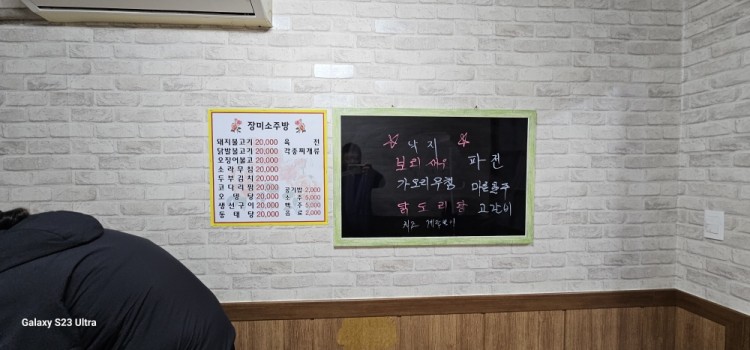 장미소주방
돼지불고기 20,000 육 전
닭발불고기 20,000 각종찌개류
오징어불고 20,000
소라무침 20,000
두부김치 20,000
코다리찜 20,000 공기밥 2,000
오뎅탕 20,000 소주 5,000
생선구이 20,000 맥주 5,000
동태탕 20,000 음료 2,000
낙지
보리새우 파전
가오리무침
닭도리탕 고갈비
치즈
Galaxy S23 Ultra